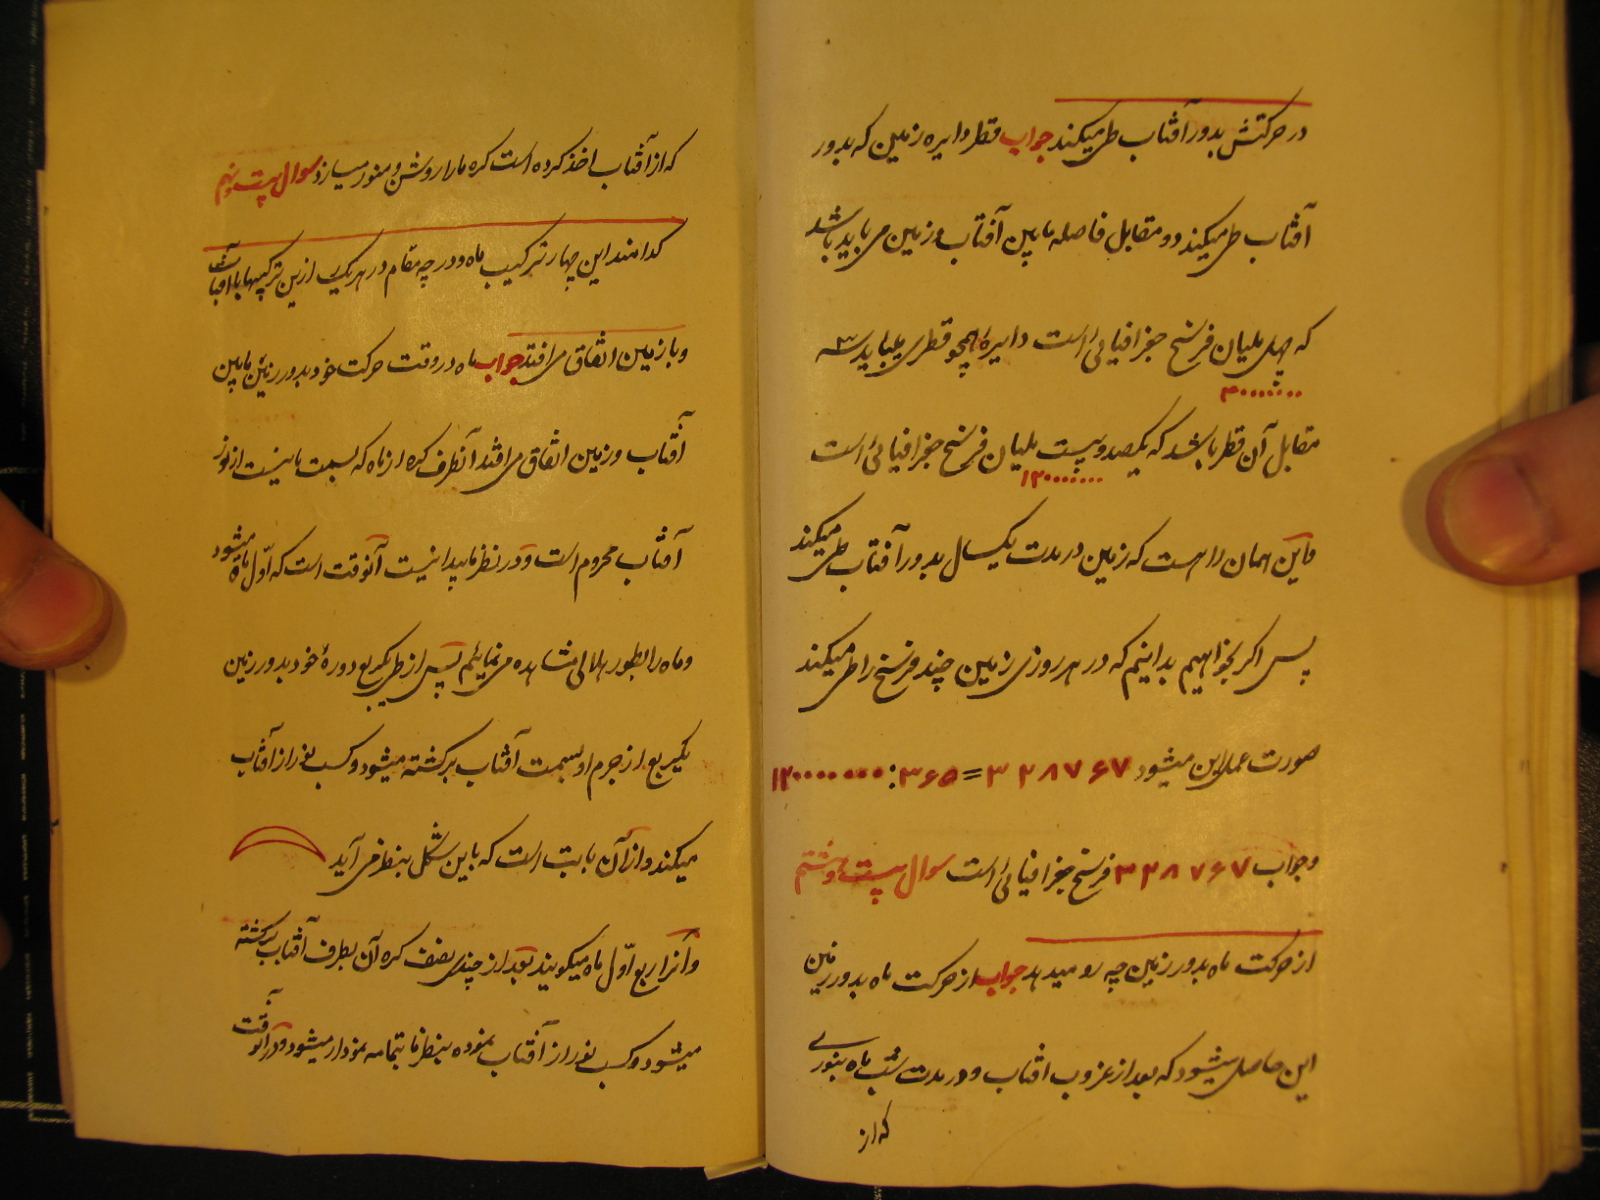 در حرکتش بدور آفتاب طی میکند جواب قطر دایره زمین که بدور
آفتاب طی میکند دو مقابل فاصله مابین آفتاب و زمین می باید باشد
که چهل ملیان فرسخ جغرافیائی است دایره همچو قطری میباید سه
۴۰۰۰۰۰۰۰
مقابل آن قطر باشد که یکصد و بیست ملیان فرسخ جغرافیائی است
۱۲۰۰۰۰۰۰۰
و این همان راهست که زمین در مدت یکسال بدور آفتاب طی میکند
پس اگر بخواهیم بدانیم که در هر روزی زمین چند فرسخ را طی میکند
صورت عمل این میشود ۳۲۸۷۶۷=۳۶۵:۱۲۰۰۰۰۰۰۰
و جواب ۳۲۸۷۶۷ فرسخ جغرافیائی است سوال بیست و هشتم
از حرکت ماه بدور زمین چه رو میدهد جواب از حرکت ماه بدور زمین
این حاصل میشود که بعد از غروب افتاب و در مدت شب ماه بنوری
که از
که از آفتاب اخذ کرده است کره ما را روشن و منور میسازد سوال بیست و نهم
کدامند این چهار ترکیب ماه و در چه مقام در هر یک ازین ترکیبها با آفتاب
و با زمین اتفاق می افتد جواب ماه در وقت حرکت خود بدور زمین مابین
آفتاب و زمین اتفاق می افتد آنطرف کره از ماه که بسمت ماست از نور
آفتاب محروم است و در نظر ما پیدا نیست آنوقت است که اول ماه میشود
و ماه را بطور هلالی مشاهده می نمائیم پس از طی یکربع دوره خود بدور زمین
یکربع از جرم او بسمت آفتاب برگشته میشود و کسب نور از آفتاب
میکند و از آن بابت است که باین شکل بنظر می آید
و آنرا ربع اول ماه میگویند بعد از چندی نصف کره آن بطرف آفتاب برگشته
میشود و کسب نور از آفتاب نموده بنظر ما بتمامه نمودار میشود و در آنوقت